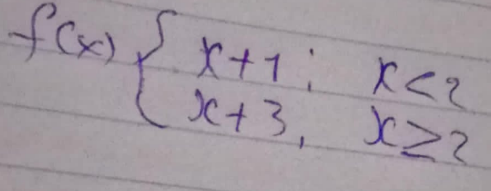 f(x) { x+1; x<2
x+3, x≥2